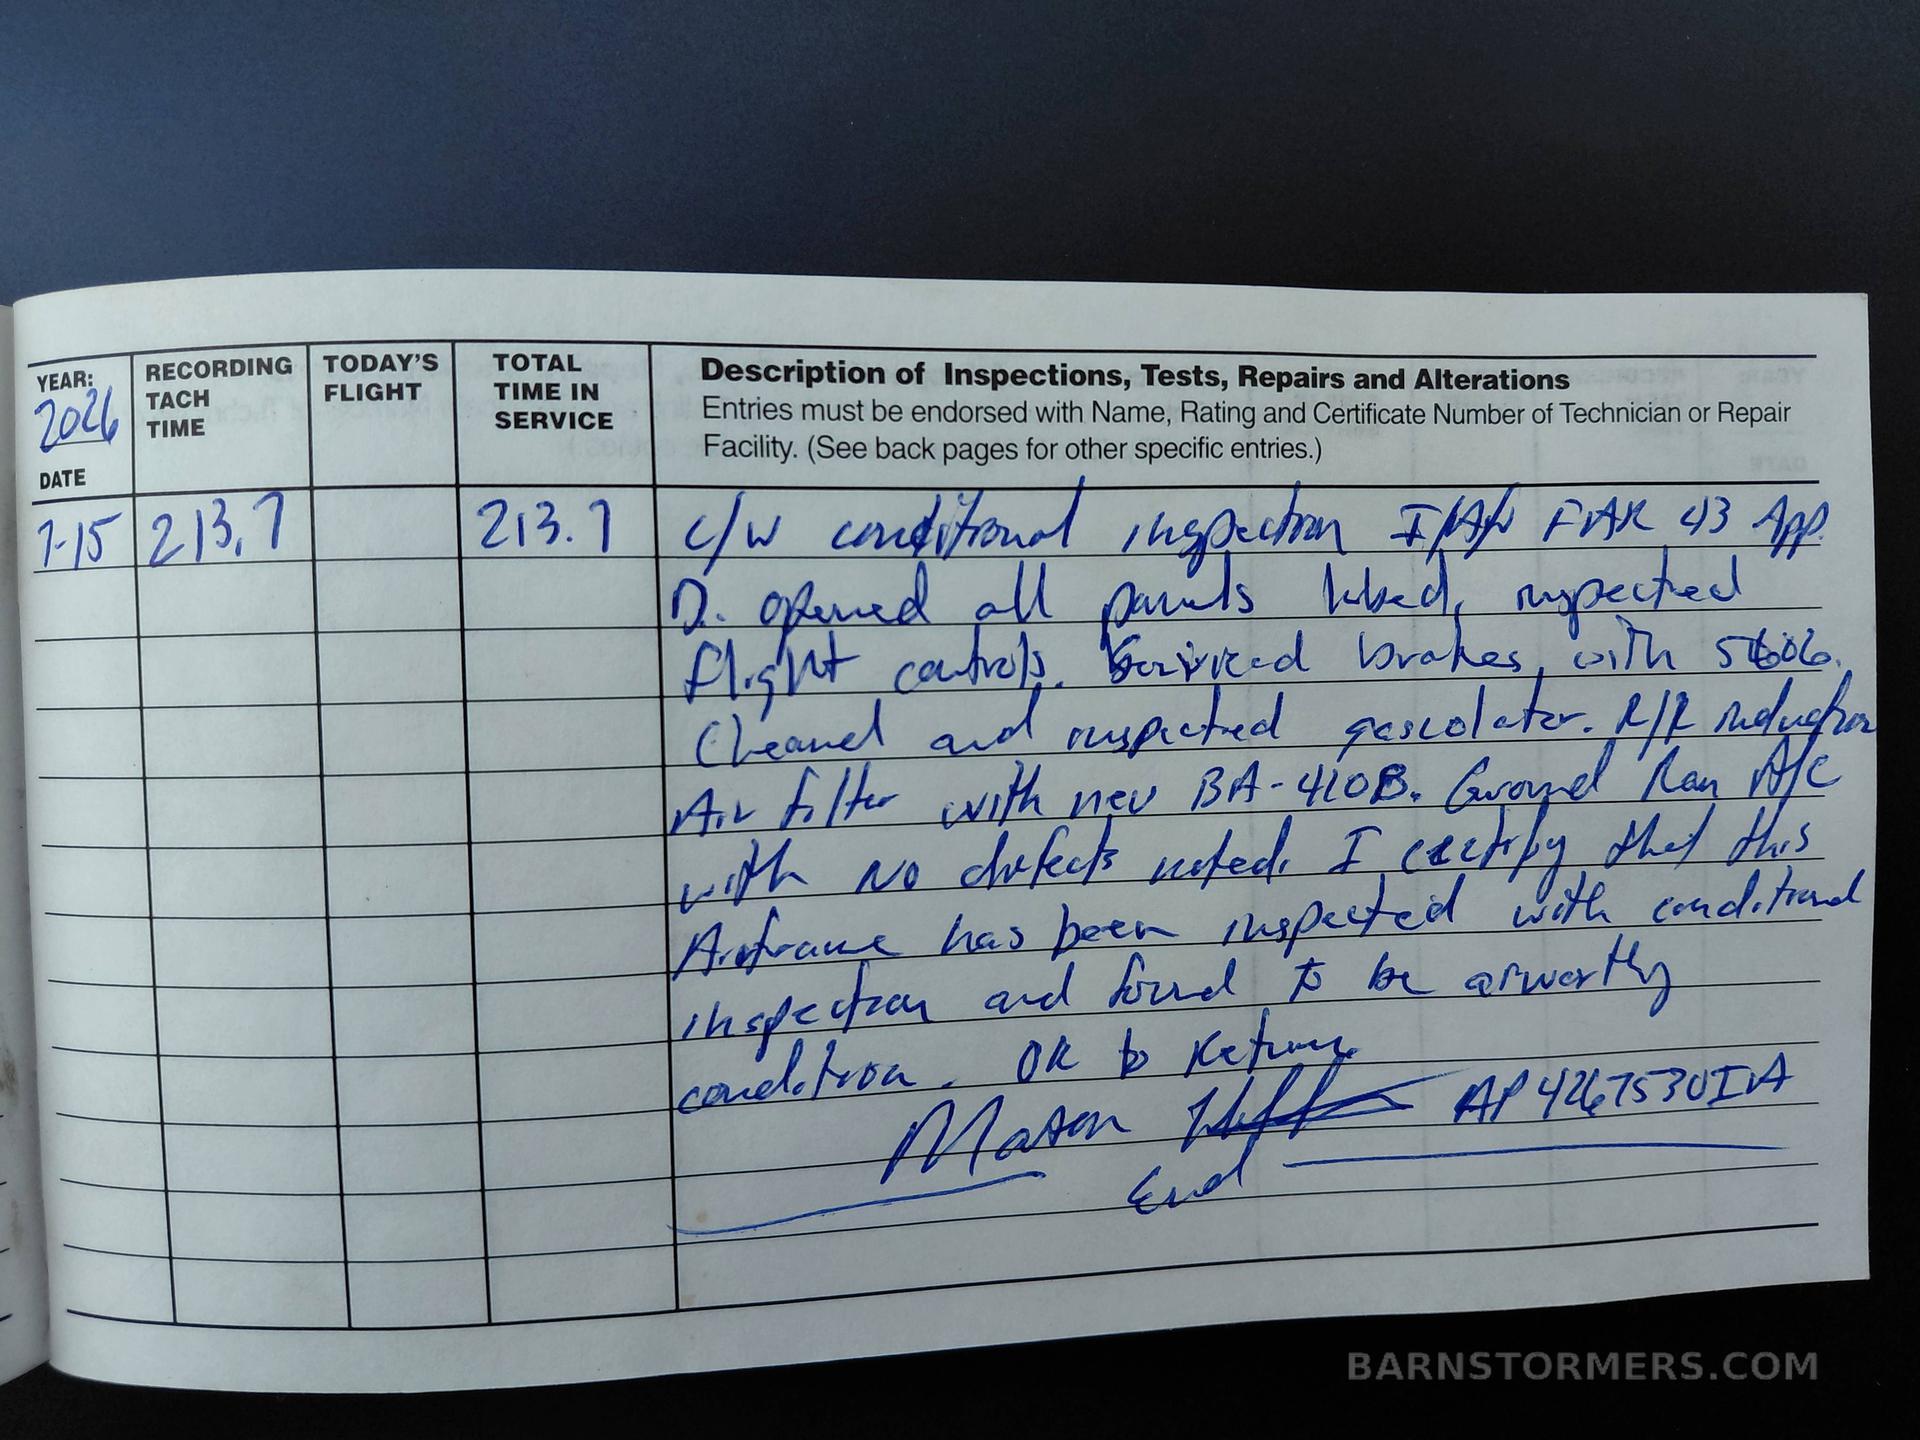 YEAR: 2026
DATE
RECORDING TACH TIME
TODAY'S FLIGHT
TOTAL TIME IN SERVICE
Description of Inspections, Tests, Repairs and Alterations
Entries must be endorsed with Name, Rating and Certificate Number of Technician or Repair
Facility. (See back pages for other specific entries.)
7-15 213.7 213.7 C/W conditional inspection I/A/W FAR 43 App.
D. opened all panels lubed, inspected
flight controls. Serviced brakes with 5606.
Cleaned and inspected gascolator. R/R induction
Air filter with new BA-410B. Ground Ran A/C
with No defects noted. I certify that this
Airframe has been inspected with conditional
inspection and found to be airworthy
condition. OK to Return.
Mason AP4267530IA
End
BARNSTORMERS.COM